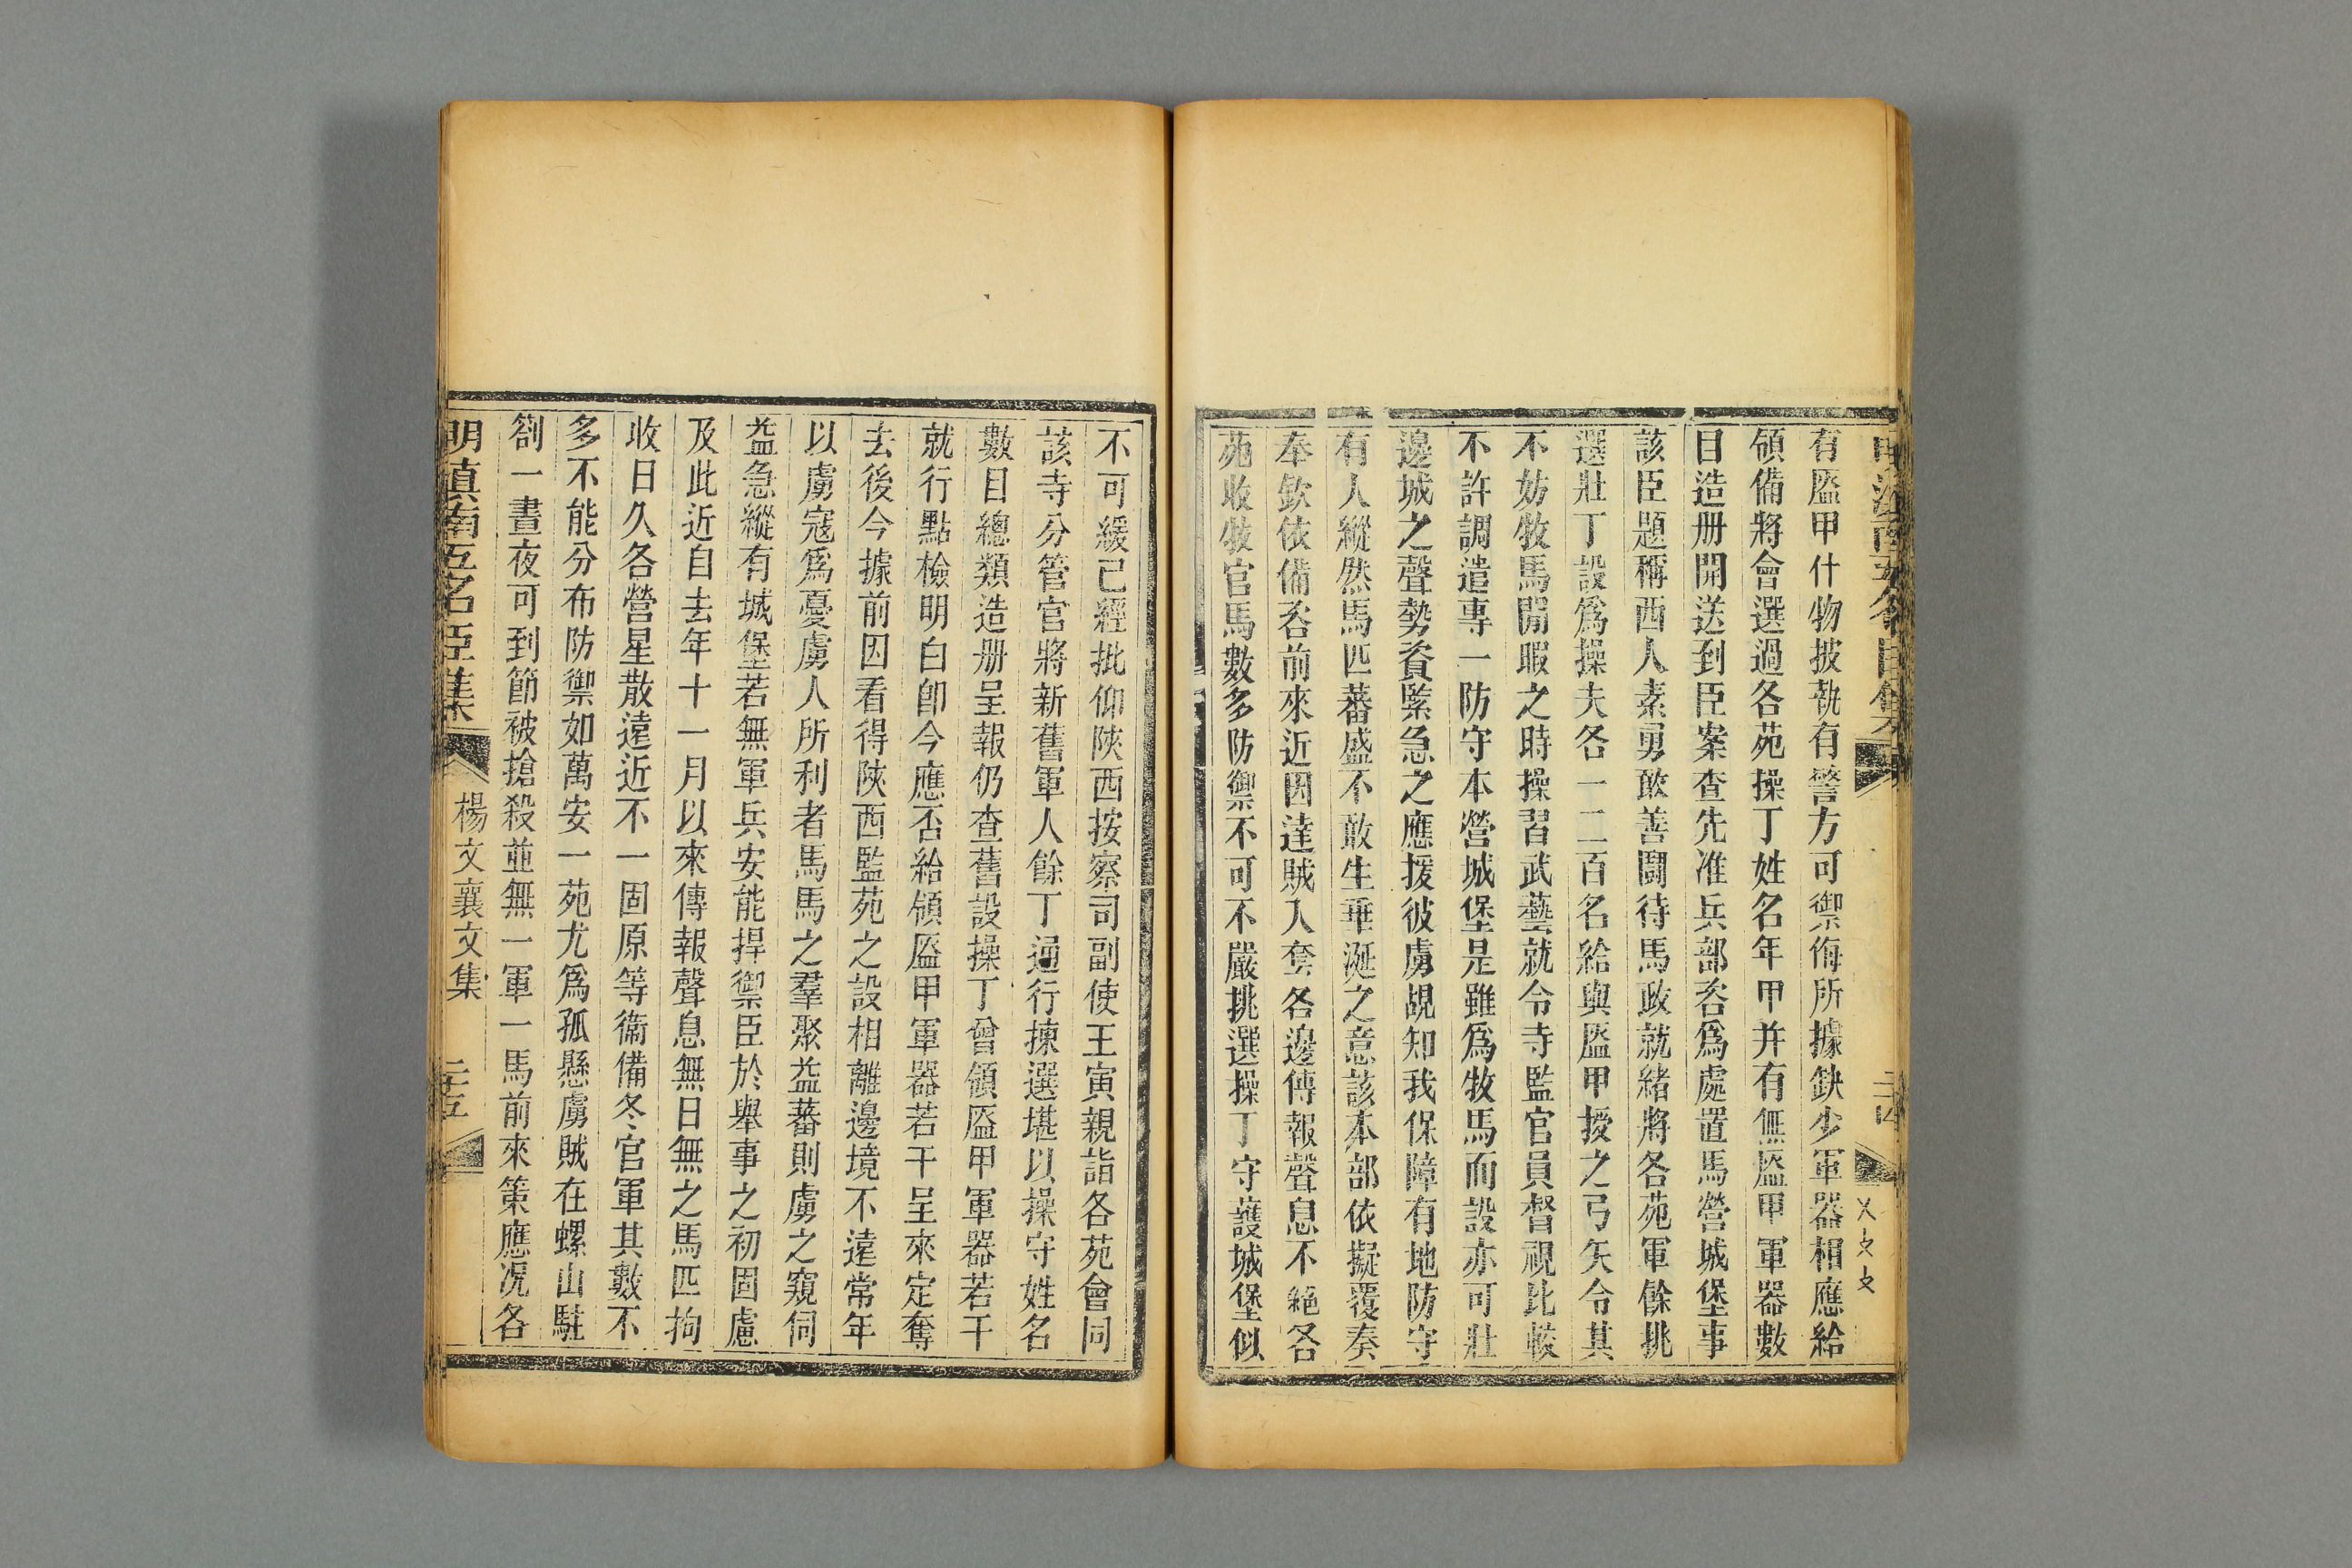 有盔甲什物披執有警方可禦侮所據缺少軍器相應給
領備將會選過各苑操丁姓名年甲并有無盔甲軍器數
目造册開送到臣案查先准兵部咨爲處置馬營城堡事
該臣題稱西人素勇敢善鬪待馬政就緒將各苑軍餘挑
選壯丁設爲操夫各一二百名給與盔甲授之弓矢令其
不妨牧馬閒暇之時操習武藝就令寺監官員督視比較
不許調遣專一防守本營城堡是雖爲牧馬而設亦可壯
邊城之聲勢資緊急之應援彼虜覘知我保障有地防守
有人縱然馬匹蕃盛不敢生垂涎之意該本部依擬覆奏
奉欽依備咨前來近因達賊入套各邊傳報聲息不絕各
苑收牧官馬數多防禦不可不嚴挑選操丁守護城堡似
不可緩已經批仰陝西按察司副使王寅親詣各苑會同
該寺分管官將新舊軍人餘丁通行揀選堪以操守姓名
數目總類造册呈報仍查舊設操丁曾領盔甲軍器若干
就行點檢明白卽今應否給領盔甲軍器若干呈來定奪
去後今據前因看得陝西監苑之設相離邊境不遠常年
以虜寇爲憂虜人所利者馬馬之羣聚益蕃則虜之窺伺
益急縱有城堡若無軍兵安能捍禦臣於舉事之初固慮
及此近自去年十一月以來傳報聲息無日無之馬匹拘
收日久各營星散遠近不一固原等衞備冬官軍其數不
多不能分布防禦如萬安一苑尤爲孤懸虜賊在螺山駐
劄一晝夜可到節被搶殺並無一軍一馬前來策應况各
明滇南五名臣集 楊文襄文集 二十五